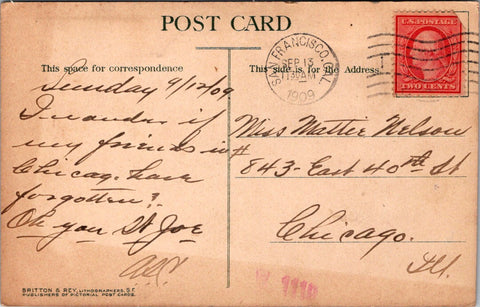 POST CARD
This space for correspondence
This side is for the Address.
SAN FRANCISCO, CAL.
SEP 13
11 30 AM
1909
U.S. POSTAGE
TWO CENTS
Sunday 9/12/09
I wonder if
my friends in
Chicag. have
forgotten?
Oh you St Joe
Miss Mattie Nelson
# 843 - East 40th St
Chicago.
Ill.
BRITTON & REY, LITHOGRAPHERS, S.F.
PUBLISHERS OF PICTORIAL POST CARDS.